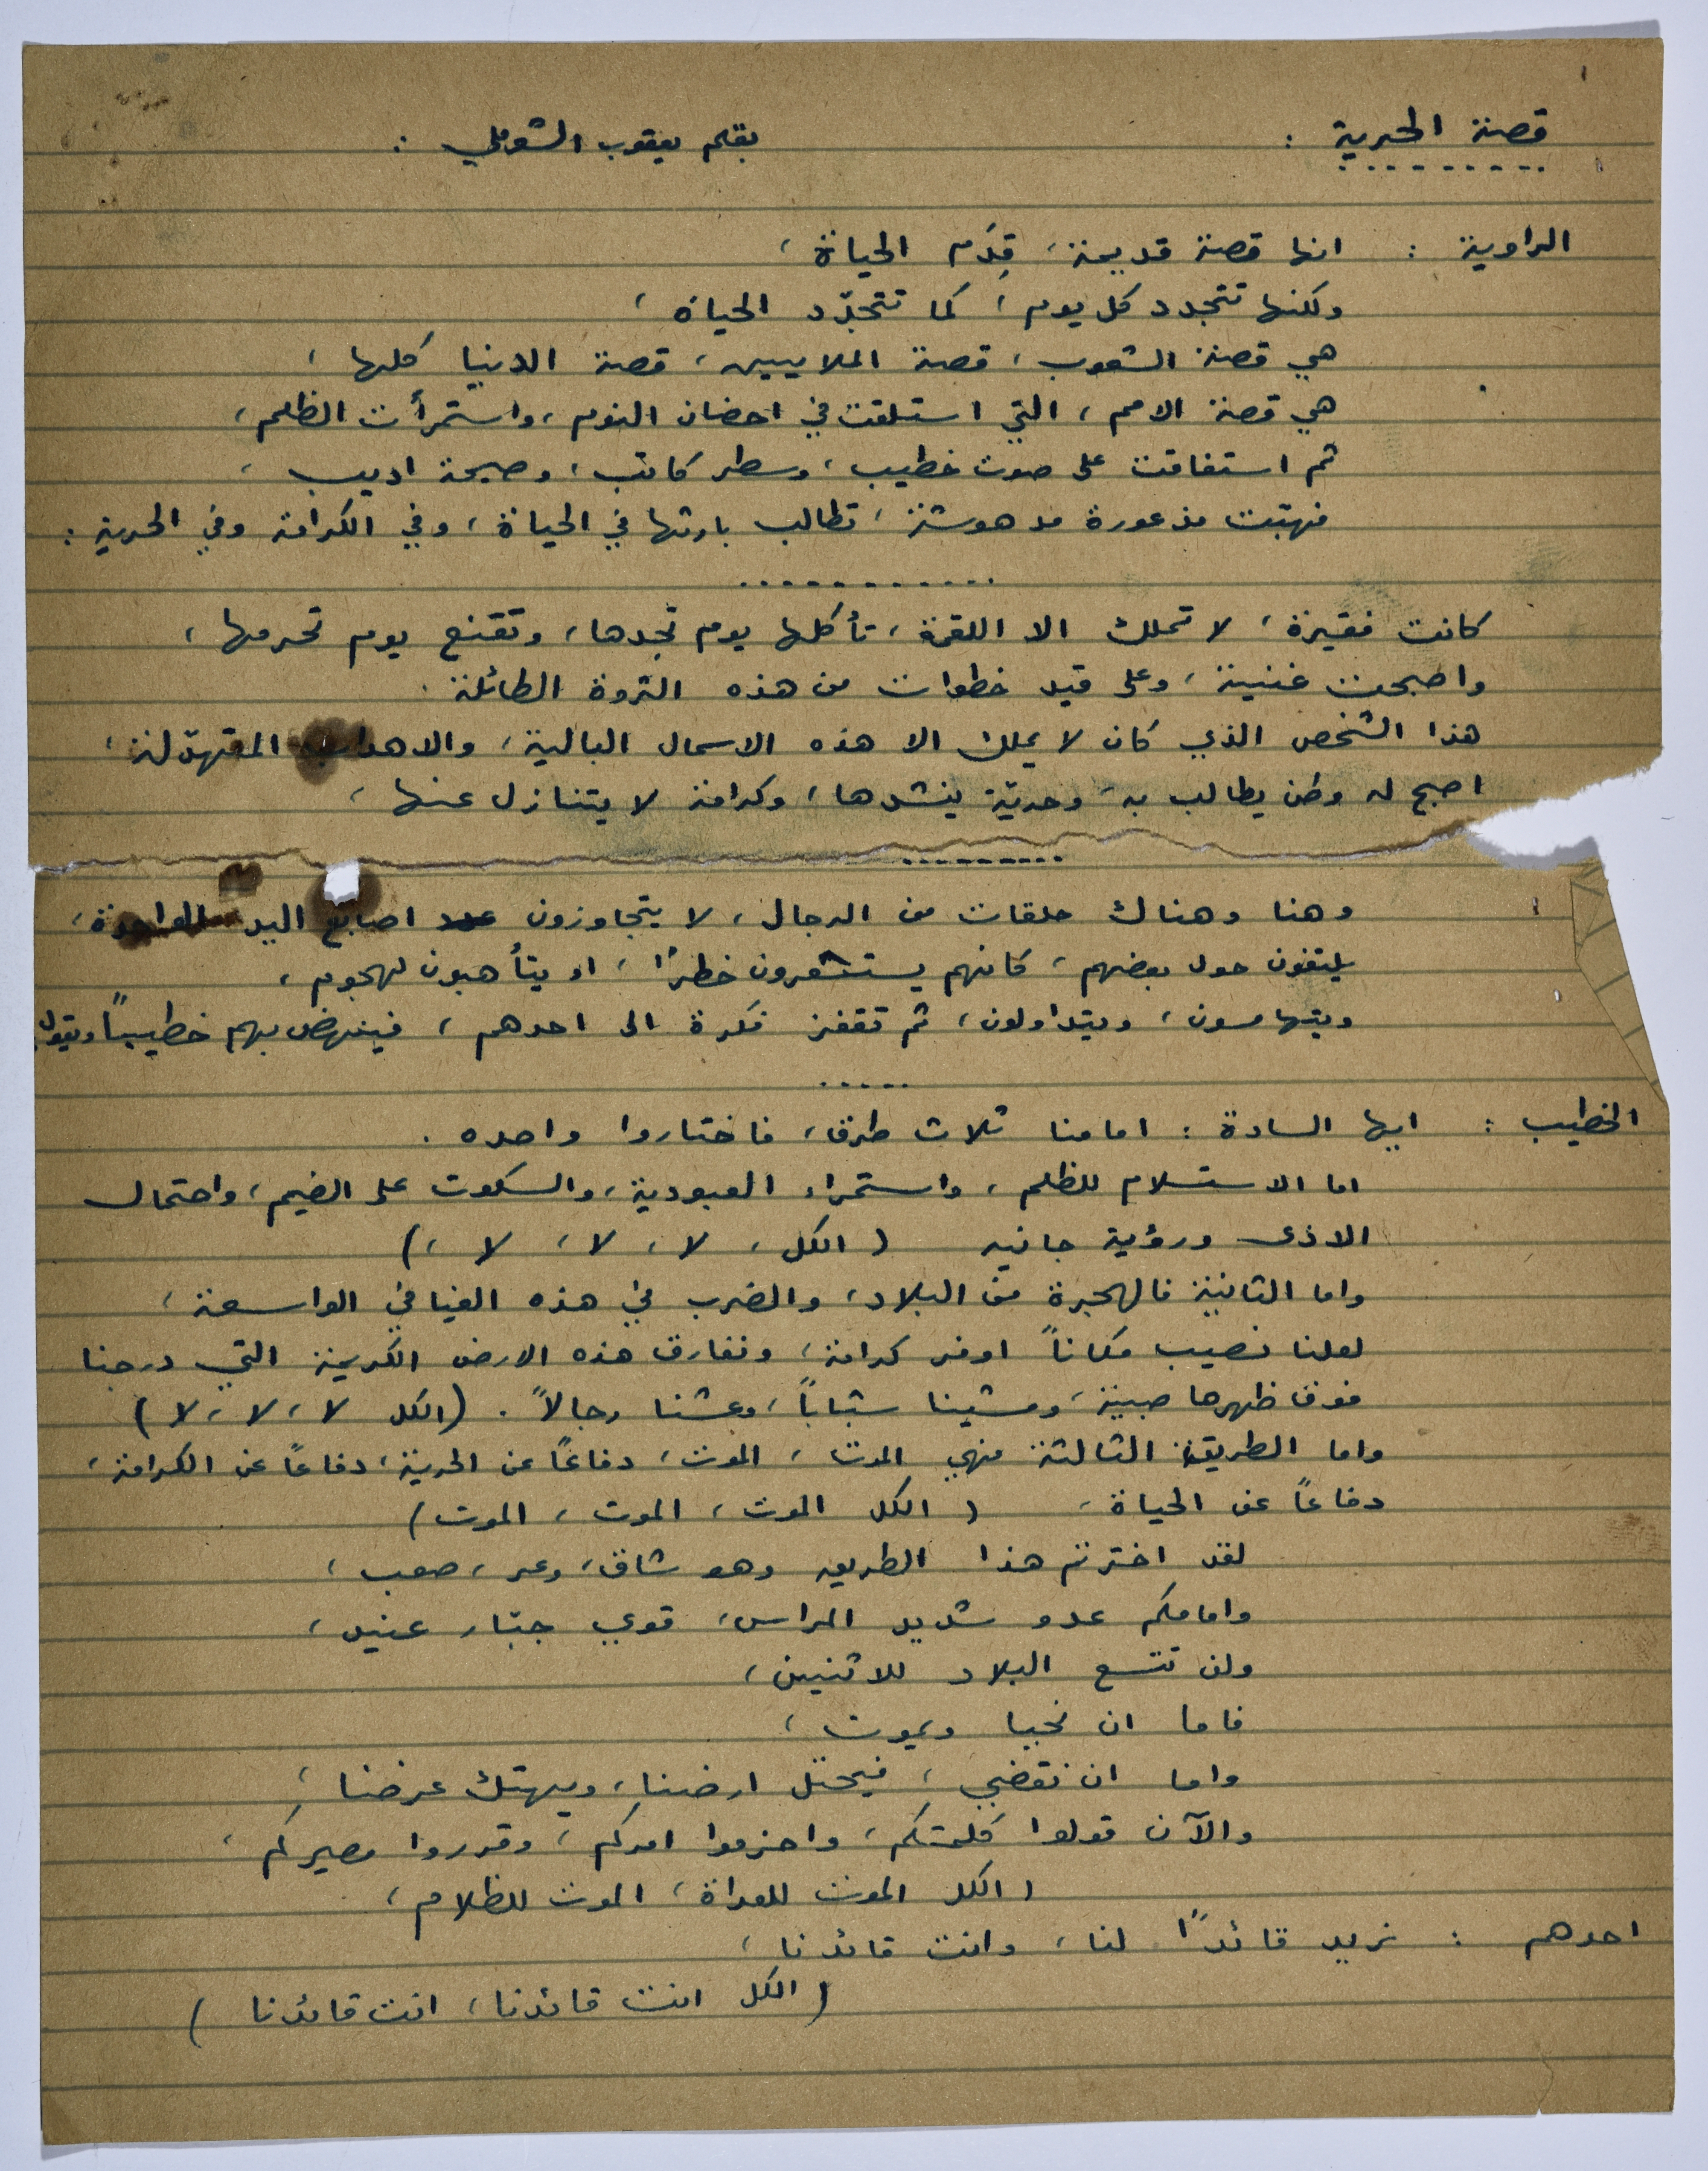 ١
قصة الحرية : بقلم يعقوب الشوملي :
الراوية : انها قصة قديمة، قِدَم الحياة،
ولكنها تتجدد كل يوم، كما تتجدّد الحياة،
هي قصة الشعوب، قصة الملايين، قصة الدنيا كلها،
هي قصة الامم، التي استلقت في احضان النوم، واستمرأت الظلم،
ثم استفاقت على صوت خطيب، وسطر كاتب، وصيحة اديب،
فهبّت مذعورة مدهوشة، تطالب بارثها في الحياة، وفي الكرامة وفي الحرية :
............
كانت فقيرة، لا تملك الا اللقمة، تأكلها يوم تجدها، وتقنع يوم تحرمها،
واصبحت غنية، وعلى قيد خطوات من هذه الثروة الطائلة.
هذا الشخص الذي كان لا يملك الا هذه الاسمال البالية، والاهداب المتهدّلة،
اصبح له وطن يطالب به، وحريّة ينشدها، وكرامة لا يتنازل عنها،
.........
وهنا وهناك حلقات من الرجال، لا يتجاوزون عدد اصابع اليد الواحدة،
يلتفون حول بعضهم، كانهم يستشعرون خطرًا، او يتأهبون لهجوم،
ويتهامسون، ويتداولون، ثم تقفز فكرة الى احدهم، فينهض بهم خطيباً ويقول:
.....
الخطيب : ايها السادة : امامنا ثلاث طرق، فاختاروا واحده.
اما الاستسلام للظلم، واستمراء العبودية، والسكوت على الضيم، واحتمال
الاذى ورؤية جانيه (الكل، لا، لا، لا،)
واما الثانية فالهجرة من البلاد، والضرب في هذه الفيافي الواسعة،
لعلنا نصيب مكاناً اوفر كرامة، ونفارق هذه الارض الكريمة التي درجنا
فوق ظهرها صبية، ومشينا شباباً، وعشنا رجالاً. (الكل لا، لا، لا)
واما الطريقة الثالثة فهي الموت، الموت، دفاعًا عن الحرية، دفاعًا عن الكرامة،
دفاعًا عن الحياة، (الكل الموت، الموت، الموت)
لقد اخترتم هذا الطريق وهو شاق، وعر، صعب،
وامامكم عدو شديد المراس، قوي جبّار عنيد،
ولن تتسع البلاد للاثنين،
فاما ان نحيا ويموت،
واما ان نقضي، فيحتل ارضنا، ويهتك عرضنا،
والآن قولوا كلمتكم، واحزموا امركم، وقرروا مصيركم،
(الكل الموت للعداة، الموت للظلام،
احدهم : نريد قائدًا لنا، وانت قائدنا،
(الكل انت قائدنا، انت قائدنا)